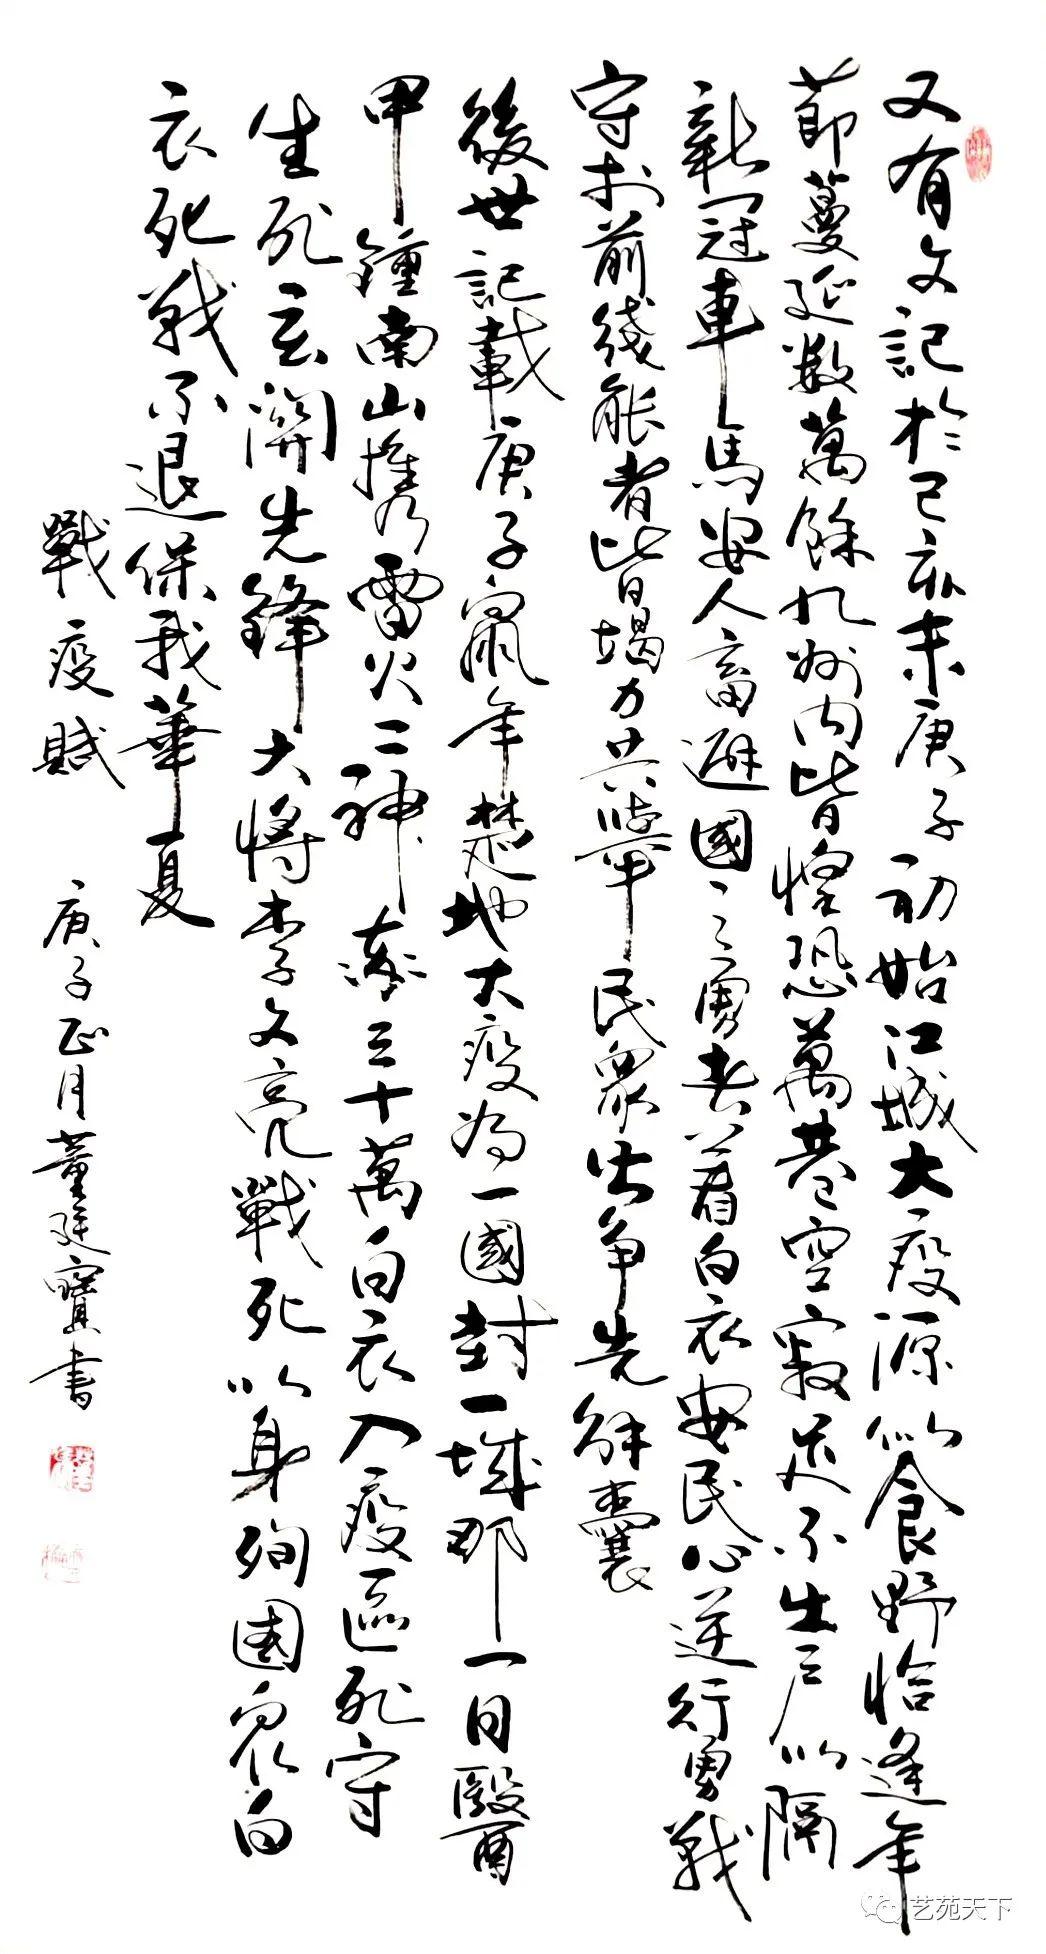 又有文記於己亥末庚子初始江城大疫源以食野恰逢年
節蔓延數萬餘九州内皆惶恐萬巷空寂足不出户以隔
新冠車馬安人畜避國之勇者着白衣安民心逆行勇戰
守於前綫能者皆竭力共举民衆皆争先解囊
後世記載庚子鼠年楚地大疫為一國封一城那一日醫
甲鍾南山携雷火二神率三十萬白衣入疫區死守
生死玄關先鋒大將李文亮戰死以身殉國衆白
衣死戰不退保我華夏
戰疫賦
庚子正月董廷寶書
艺苑天下